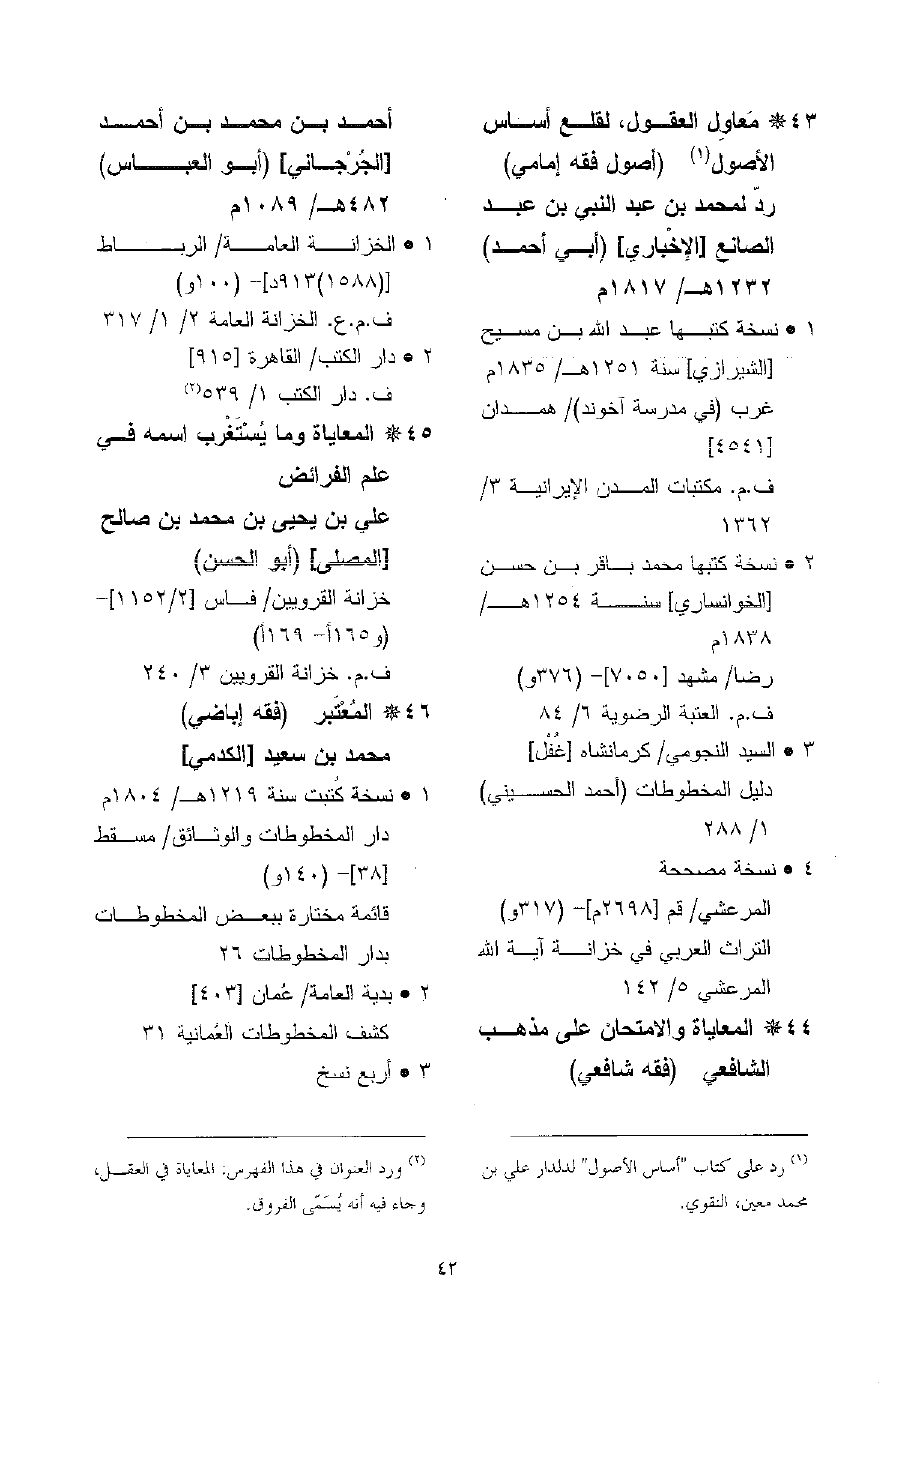 ٤٣ * مَعاوِل العقول، لقلع أساس
الأصول(١) (أصول فقه إمامي)
ردّ لمحمد بن عبد النبي بن عبد
الصانع [الإخْباري] (أبي أحمد)
١٢٣٢هـ/ ١٨١٧م
١ • نسخة كتبها عبد الله بن مسيح
[الشيرازي] سنة ١٢٥١هـ/ ١٨٣٥م
غرب (في مدرسة آخوند)/ همدان
[٤٥٤١]
ف.م. مكتبات المدن الإيرانية ٣/
١٣٦٢
٢ • نسخة كتبها محمد باقر بن حسن
[الخوانساري] سنة ١٢٥٤هـ/
١٨٣٨م
رضا/ مشهد [٧٠٥٠]- (٣٧٦و)
ف.م. العتبة الرضوية ٦/ ٨٤
٣ • السيد النجومي/ كرمانشاه [غُفْل]
دليل المخطوطات (أحمد الحسيني)
١/ ٢٨٨
٤ • نسخة مصححة
المرعشي/ قم [٢٦٩٨م]- (٣١٧و)
التراث العربي في خزانة آية الله
المرعشي ٥/ ١٤٢
٤٤ * المعاياة والامتحان على مذهب
الشافعي (فقه شافعي)
أحمد بن محمد بن أحمد
[الجُرْجاني] (أبو العباس)
٤٨٢هـ/ ١٠٨٩م
١ • الخزانة العامة/ الرباط
[(١٥٨٨)٩١٣د]- (١٠٠و)
ف.م.ع. الخزانة العامة ٢/ ١/ ٣١٧
٢ • دار الكتب/ القاهرة [٩١٥]
ف. دار الكتب ١/ ٥٣٩(٢)
٤٥ * المعاياة وما يُسْتَغْرب اسمه في
علم الفرائض
علي بن يحيى بن محمد بن صالح
[المصلى] (أبو الحسن)
خزانة القرويين/ فاس [١١٥٢/٢]-
(و١٦٥أ- ١٦٩أ)
ف.م. خزانة القرويين ٣/ ٢٤٠
٤٦ * المُعْتَبر (فقه إباضي)
محمد بن سعيد [الكدمي]
١ • نسخة كُتبت سنة ١٢١٩هـ/ ١٨٠٤م
دار المخطوطات والوثائق/ مسقط
[٣٨]- (١٤٠و)
قائمة مختارة ببعض المخطوطات
بدار المخطوطات ٢٦
٢ • بدية العامة/ عُمان [٤٠٣]
كشف المخطوطات العُمانية ٣١
٣ • أربع نسخ
(١) رد على كتاب "أساس الأصول" لدلدار علي بن
محمد معين، النقوي.
(٢) ورد العنوان في هذا الفهرس: المعاياة في العقل،
وجاء فيه أنه يُسَمّى الفروق.
٤٢